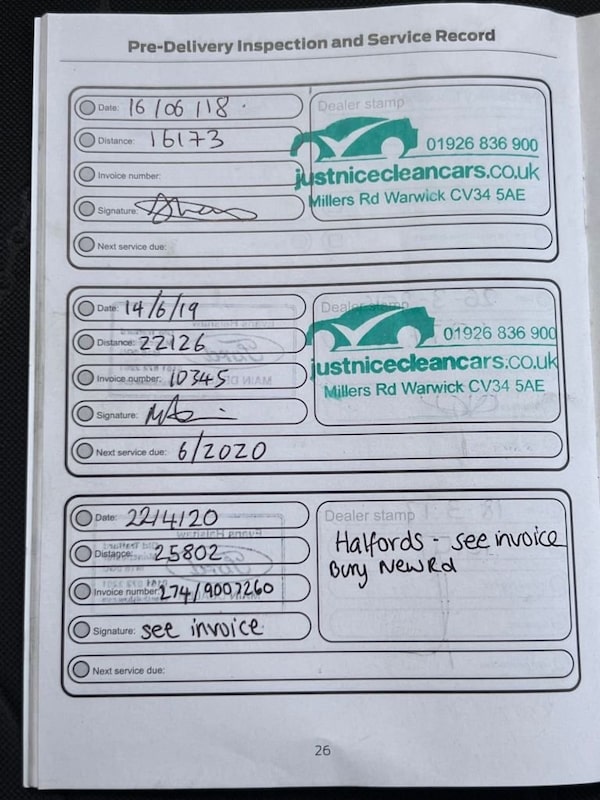 Pre-Delivery Inspection and Service Record
Date: 16/06/18.
Distance: 16173
Invoice number:
Signature:
Next service due:
Dealer stamp
01926 836 900
justnicecleancars.co.uk
Millers Rd Warwick CV34 5AE
Date: 14/6/19
Distance: 22126
Invoice number: 10345
Signature:
Next service due: 6/2020
Dealer stamp
01926 836 900
justnicecleancars.co.uk
Millers Rd Warwick CV34 5AE
Date: 22/4/20
Distance: 25802
Invoice number: 274/9007260
Signature: see invoice
Next service due:
Dealer stamp
Halfords - see invoice
Bury New Rd
26